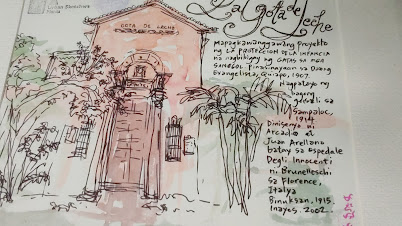 Urban Sketchers
Manila
La Gota de
Leche
GOTA DE LECHE
Mapagkawanggawang Proyekto
ng LA PROTECCION DE LA INFANCIA
na nagbibigay ng GATAS sa mga
SANGGOL. Pinasinayaan sa Daang
Evangelista, Quiapo, 1907.
Nagpatayo ng
bagong
gusali sa
Sampaloc,
1914
Dinisenyo ni
Arcadio at
Juan Arellano
batay sa Ospedale
Degli Innocenti
ni Brunelleschi
sa Florence,
Italya
Binuksan, 1915.
Inayos, 2002.